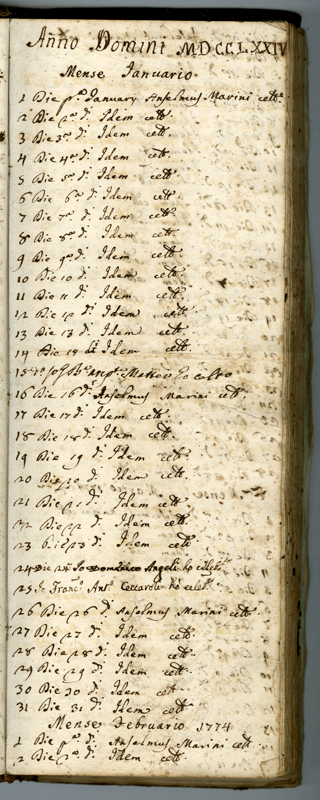 Anno Domini MDCCLXXIV
Mense Ianuario
1 Die pª January Anselmus Marini cettᵗ
2 Die 2ª dⁱ Idem cettᵗ.
3 Die 3ª dⁱ Idem cettᵗ.
4 Die 4ª dⁱ. Idem cettᵗ.
5 Die 5ª dⁱ. Idem cettᵗ.
6 Die 6ª dⁱ. Idem cettᵗ.
7 Die 7ª dⁱ. Idem cettᵗ.
8 Die 8ª dⁱ. Idem cettᵗ.
9 Die 9ª dⁱ. Idem cettᵗ.
10 Die 10 dⁱ. Idem cettᵗ.
11 Die 11 dⁱ. Idem cettᵗ.
12 Die 12 dⁱ. Idem cettᵗ.
13 Die 13 dⁱ. Idem cettᵗ.
14 Die 14 dⁱ Idem cettᵗ.
15 Matteo
16 Die 16 dⁱ. Anselmus Marini cettᵗ.
17 Die 17 dⁱ. Idem cettᵗ.
18 Die 18 dⁱ. Idem cettᵗ.
19 Die 19 dⁱ. Idem cettᵗ.
20 Die 20 dⁱ. Idem cettᵗ.
21 Die 21 dⁱ. Idem cettᵗ.
22 Die 22 dⁱ. Idem cettᵗ.
23 Die 23 dⁱ. Idem cettᵗ.
24 Die 24 Io Domenico Angeli ho celebᵗᵒ
25 Io Francº Antº Ceccaroli ho celebᵗᵒ
26 Die 26 dⁱ. Anselmus Marini cettᵗ.
27 Die 27 dⁱ. Idem cettᵗ
28 Die 28 dⁱ. Idem cettᵗ.
29 Die 29 dⁱ. Idem cettᵗ.
30 Die 30 dⁱ. Idem cetᵗ
31 Die 31 dⁱ. Idem cettᵗ.
Mense Februario 1774
1 Die pª dⁱ. Anselmus Marini cettᵗ.
2 Die 2ª dⁱ. Idem cettᵗ.